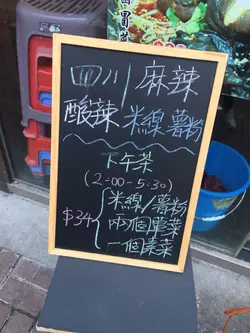 四川 麻辣
酸辣 米線 薯粉
下午茶
(2:00-5:30)
米線/薯粉
$34 兩個葷菜
一個素菜